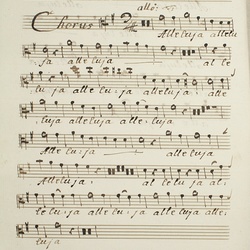 allo:
Chorus
Alleluja allelu
ja alleluja al le
lu: ja alle: luja alleluja: alle:
luja alleluja alle: luja
Alle: lu: ja alleluja
Alleluja, al le lu ja al:
le lu: ja alle lu ja alle:
luja